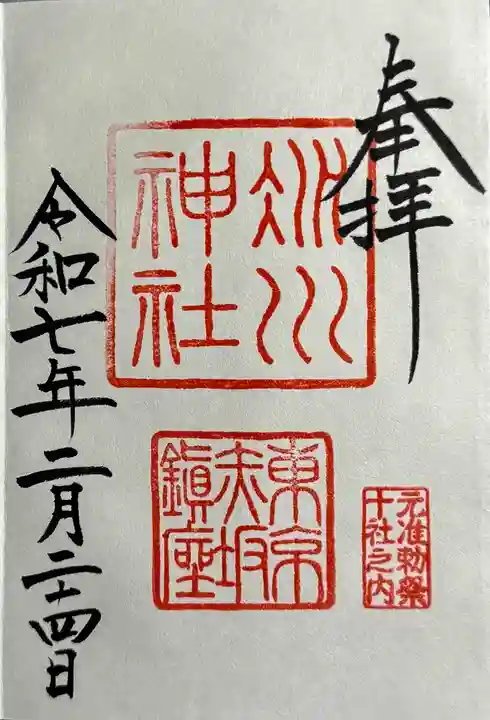 奉拝
氷川
神社
東京
赤坂
鎮座
元准勅祭
十社之内
令和七年二月二十四日